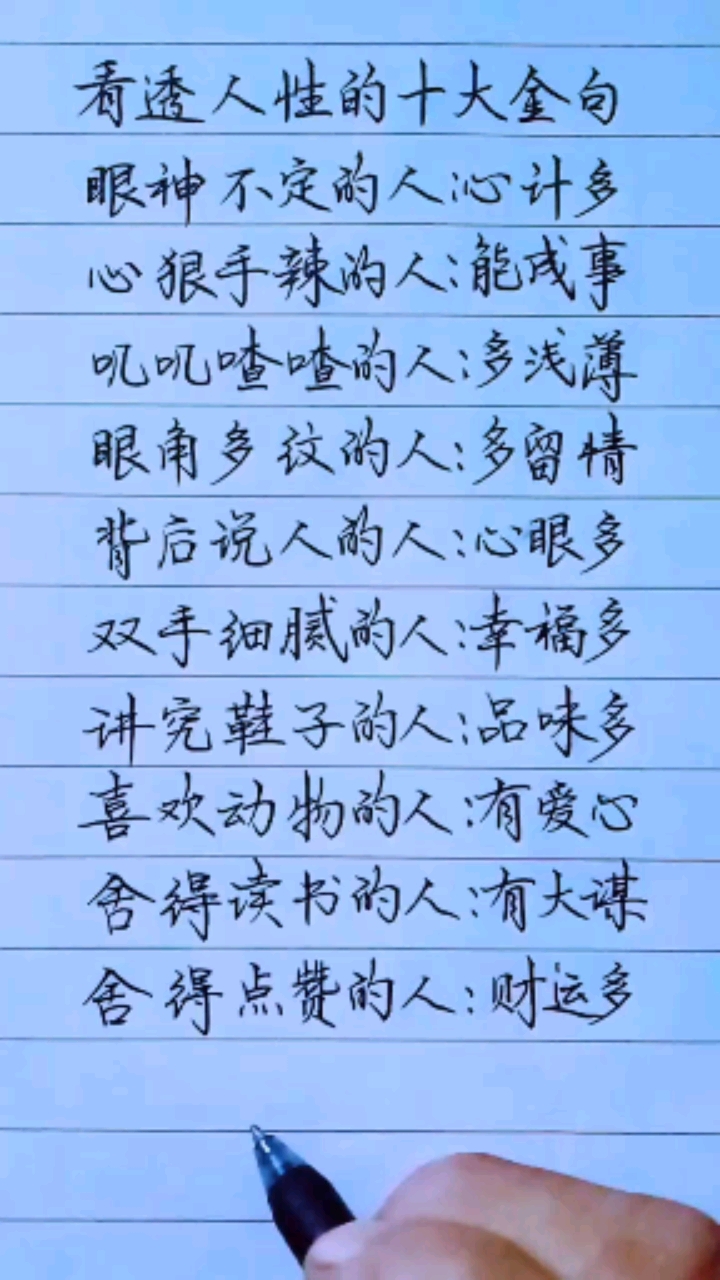 看透人性的十大金句
眼神不定的人:心计多
心狠手辣的人:能成事
叽叽喳喳的人:多浅薄
眼角多纹的人:多留情
背后说人的人:心眼多
双手细腻的人:幸福多
讲究鞋子的人:品味多
喜欢动物的人:有爱心
舍得读书的人:有大谋
舍得点赞的人:财运多